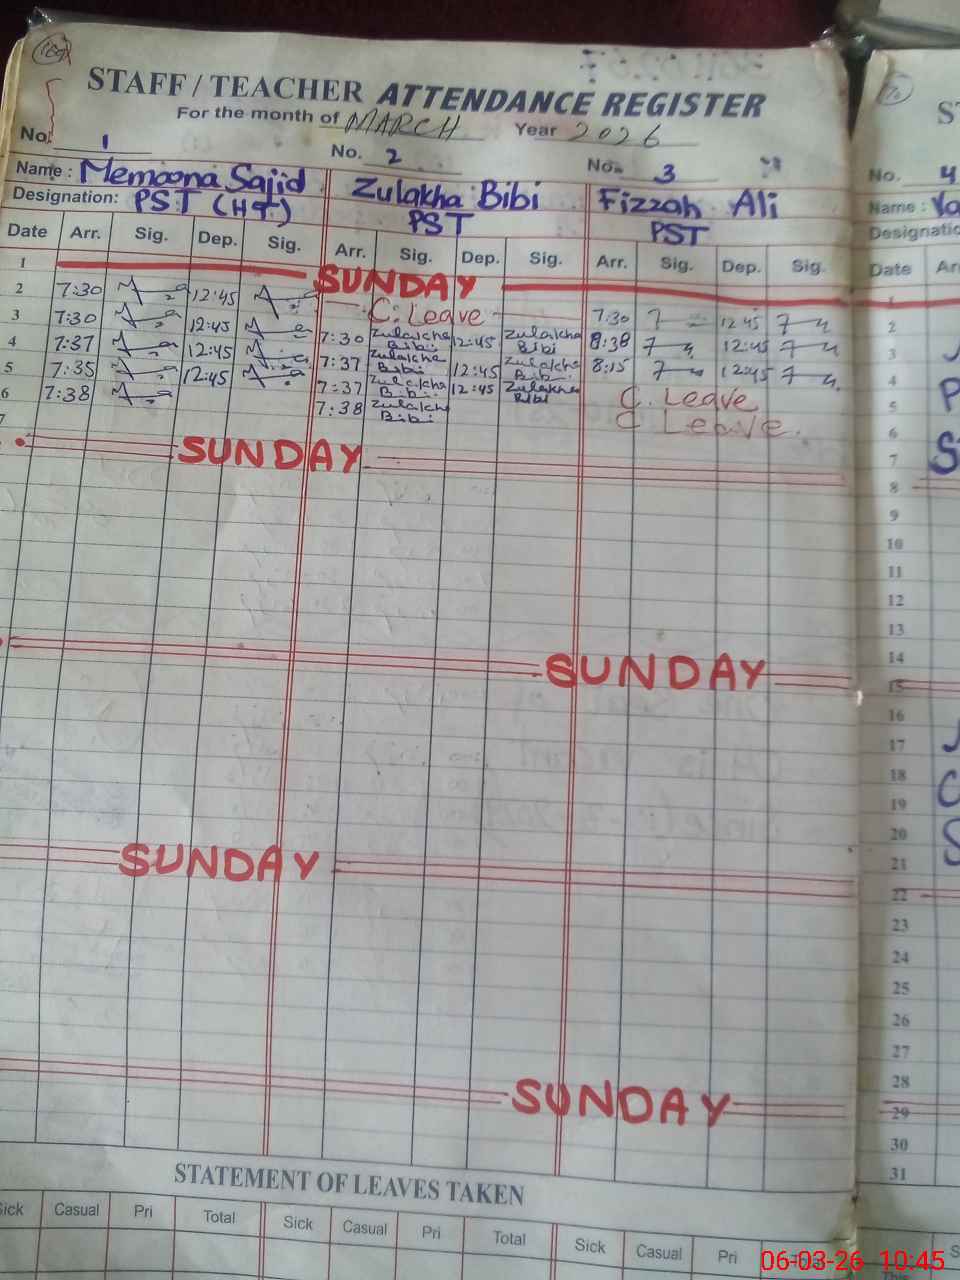 169
STAFF / TEACHER ATTENDANCE REGISTER
For the month of MARCH Year 2026
No. 1 No. 2 No. 3
Name : Memoona Sajid Zulakha Bibi Fizzah Ali
Designation: PST (HT) PST PST
Date Arr. Sig. Dep. Sig. Arr. Sig. Dep. Sig. Arr. Sig. Dep. Sig.
1 SUNDAY
2 7:30 12:45 C. Leave 7:30 12:45
3 7:30 12:45 7:30 Zulakha Bibi 12:45 Zulakha Bibi 8:38 12:45
4 7:37 12:45 7:37 Zulakha Bibi 12:45 Zulakha Bibi 8:15 12:45
5 7:35 12:45 7:37 Zulakha Bibi 12:45 Zulakha Bibi C. Leave
6 7:38 7:38 Zulakha Bibi C Leave.
7
SUNDAY
SUNDAY
SUNDAY
SUNDAY
STATEMENT OF LEAVES TAKEN
Sick Casual Pri Total Sick Casual Pri Total Sick Casual Pri Total
No. 4
Name :
Date
1
2
3
4
5
6
7
8
9
10
11
12
13
14
15
16
17
18
19
20
21
22
23
24
25
26
27
28
29
30
31
06-03-26 10:45